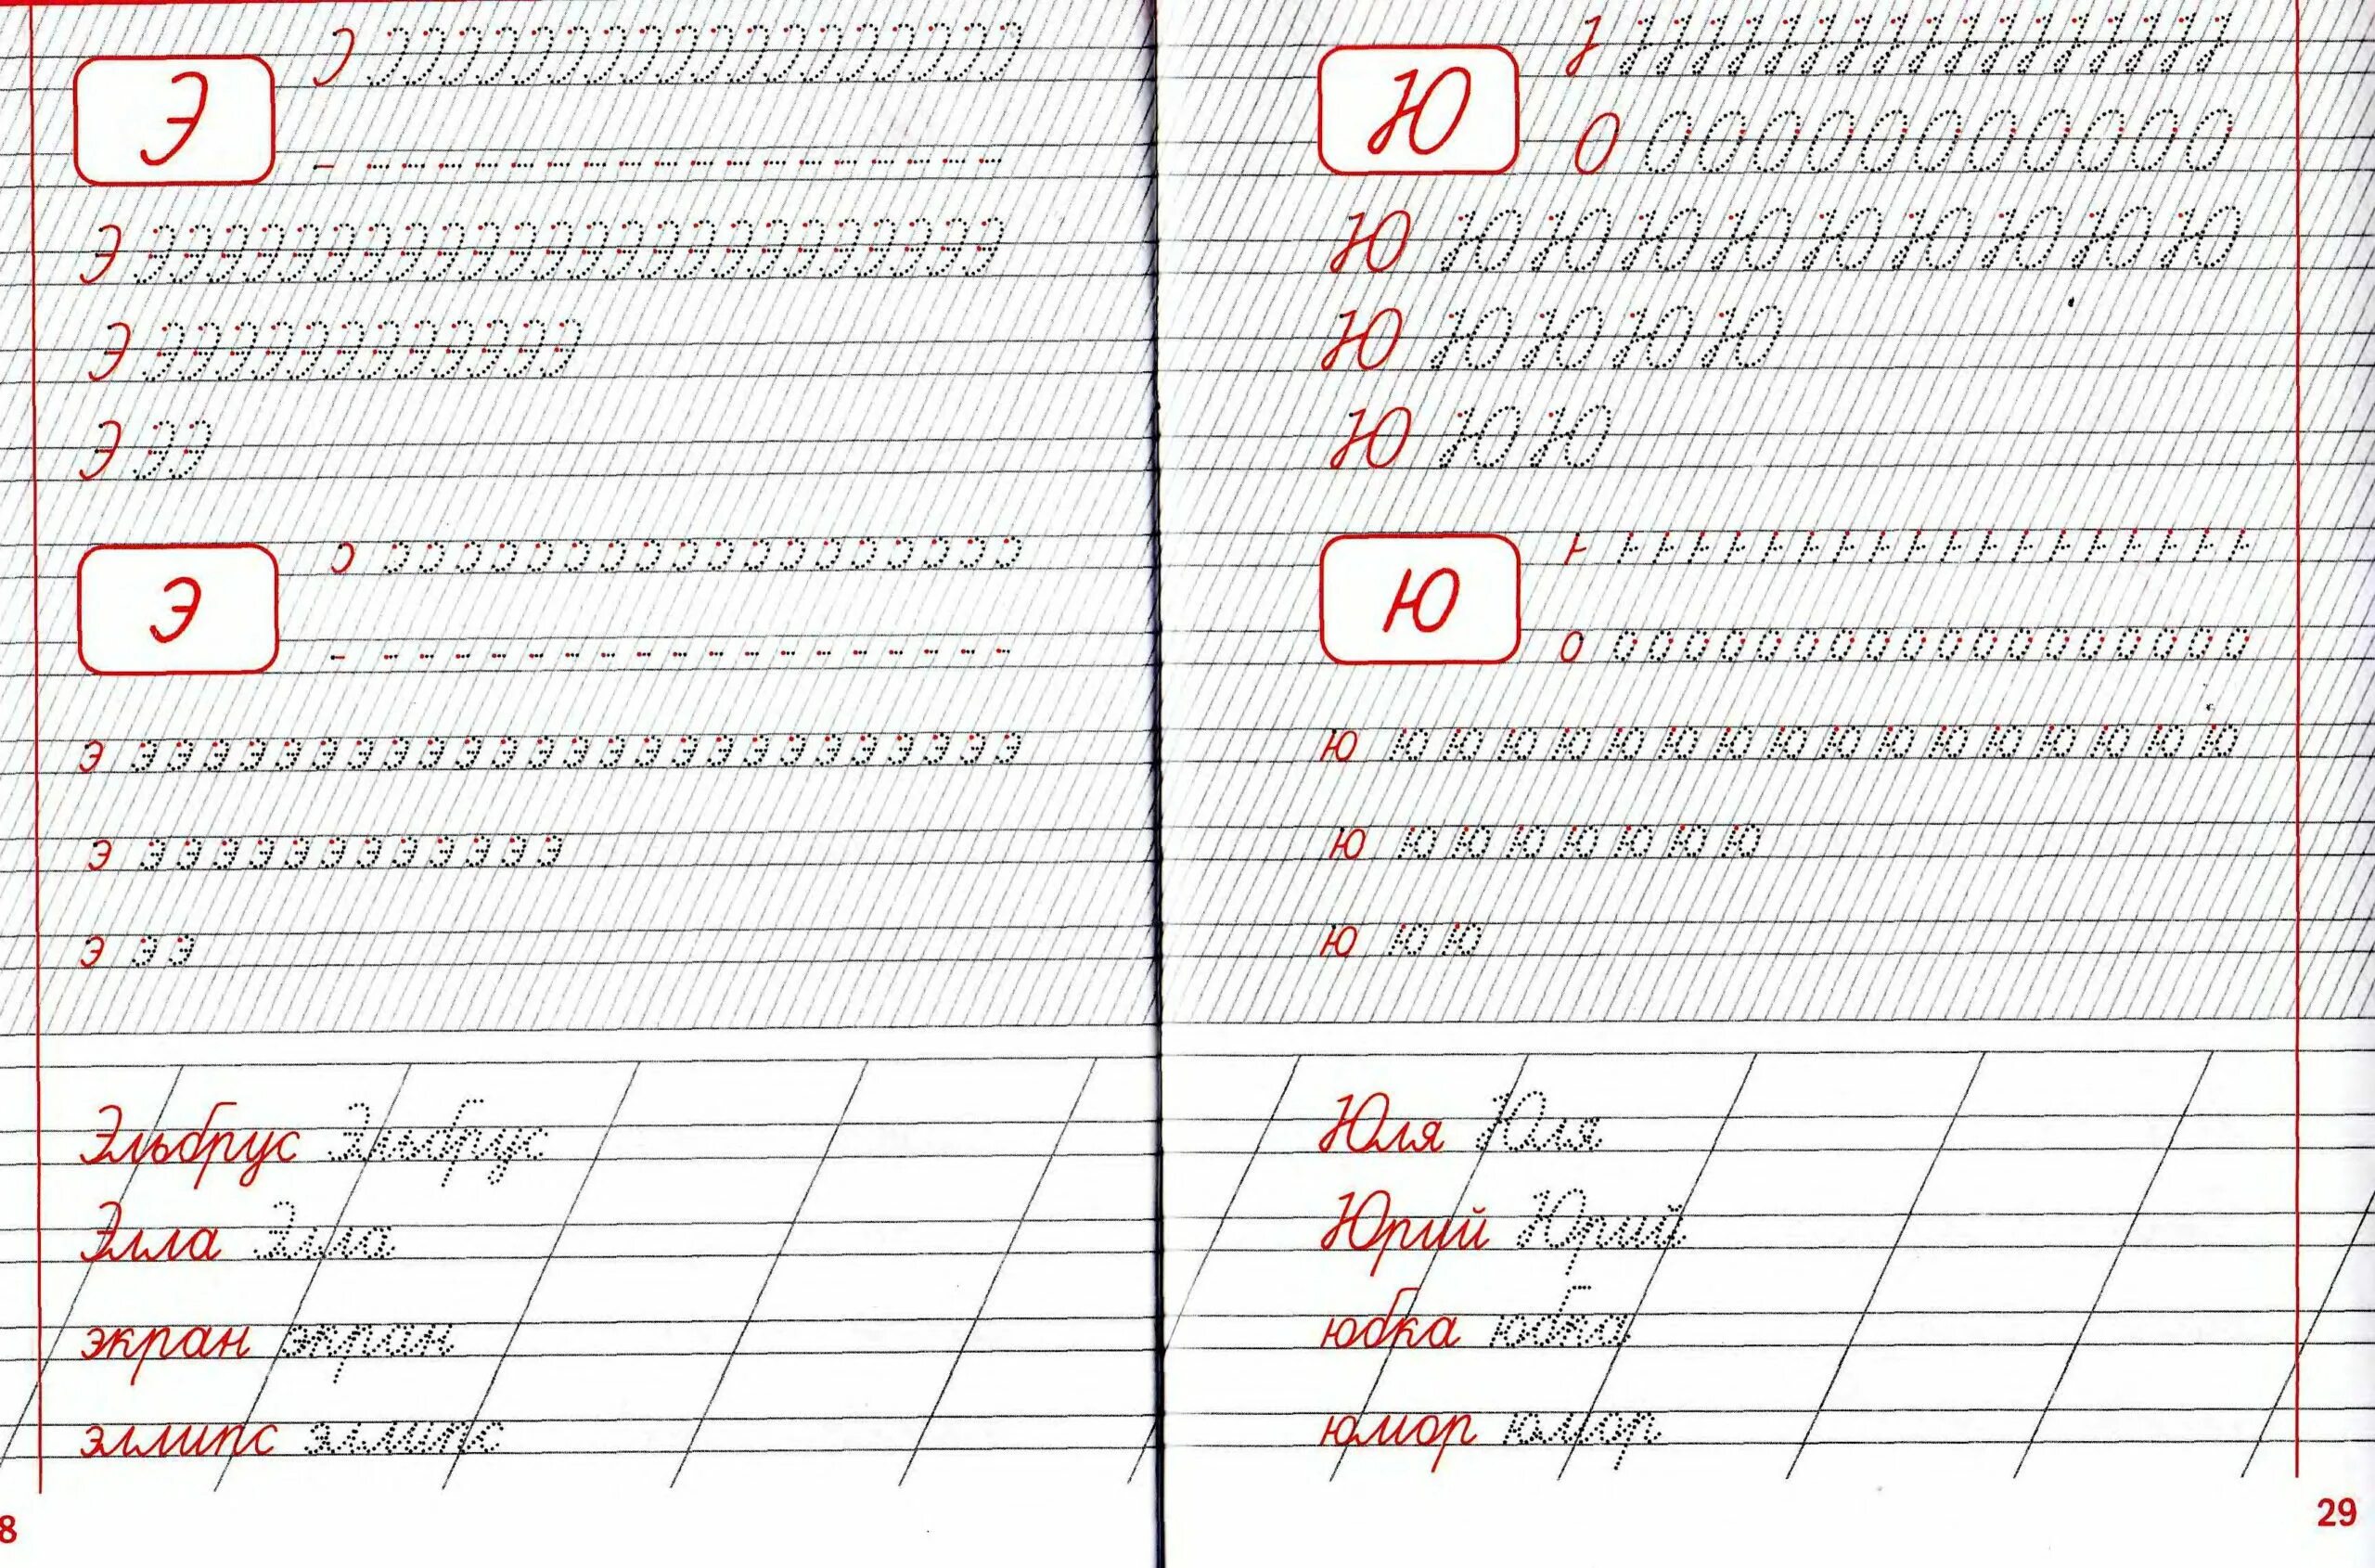 Э
Э Э Э Э Э Э Э Э Э Э Э Э Э Э Э Э Э Э Э Э Э Э Э Э Э
Э Э Э Э Э Э Э Э Э Э Э Э Э
Э Э Э
э
э э э э э э э э э э э э э э э э э э э э э э э э э э
э э э э э э э э э э э э э
э э э
Эльбрус Эльбрус
Элла Элла
экран экран
эллипс эллипс
8
Ю
О О О О О О О О О О О О
Ю Ю Ю Ю Ю Ю Ю Ю Ю Ю
Ю Ю Ю Ю Ю
Ю Ю Ю
ю
о о о о о о о о о о о о о о о о о о о
ю ю ю ю ю ю ю ю ю ю ю ю ю ю ю ю ю
ю ю ю ю ю ю ю ю
ю ю ю
Юля Юля
Юрий Юрий
юбка юбка
юмор юмор
29